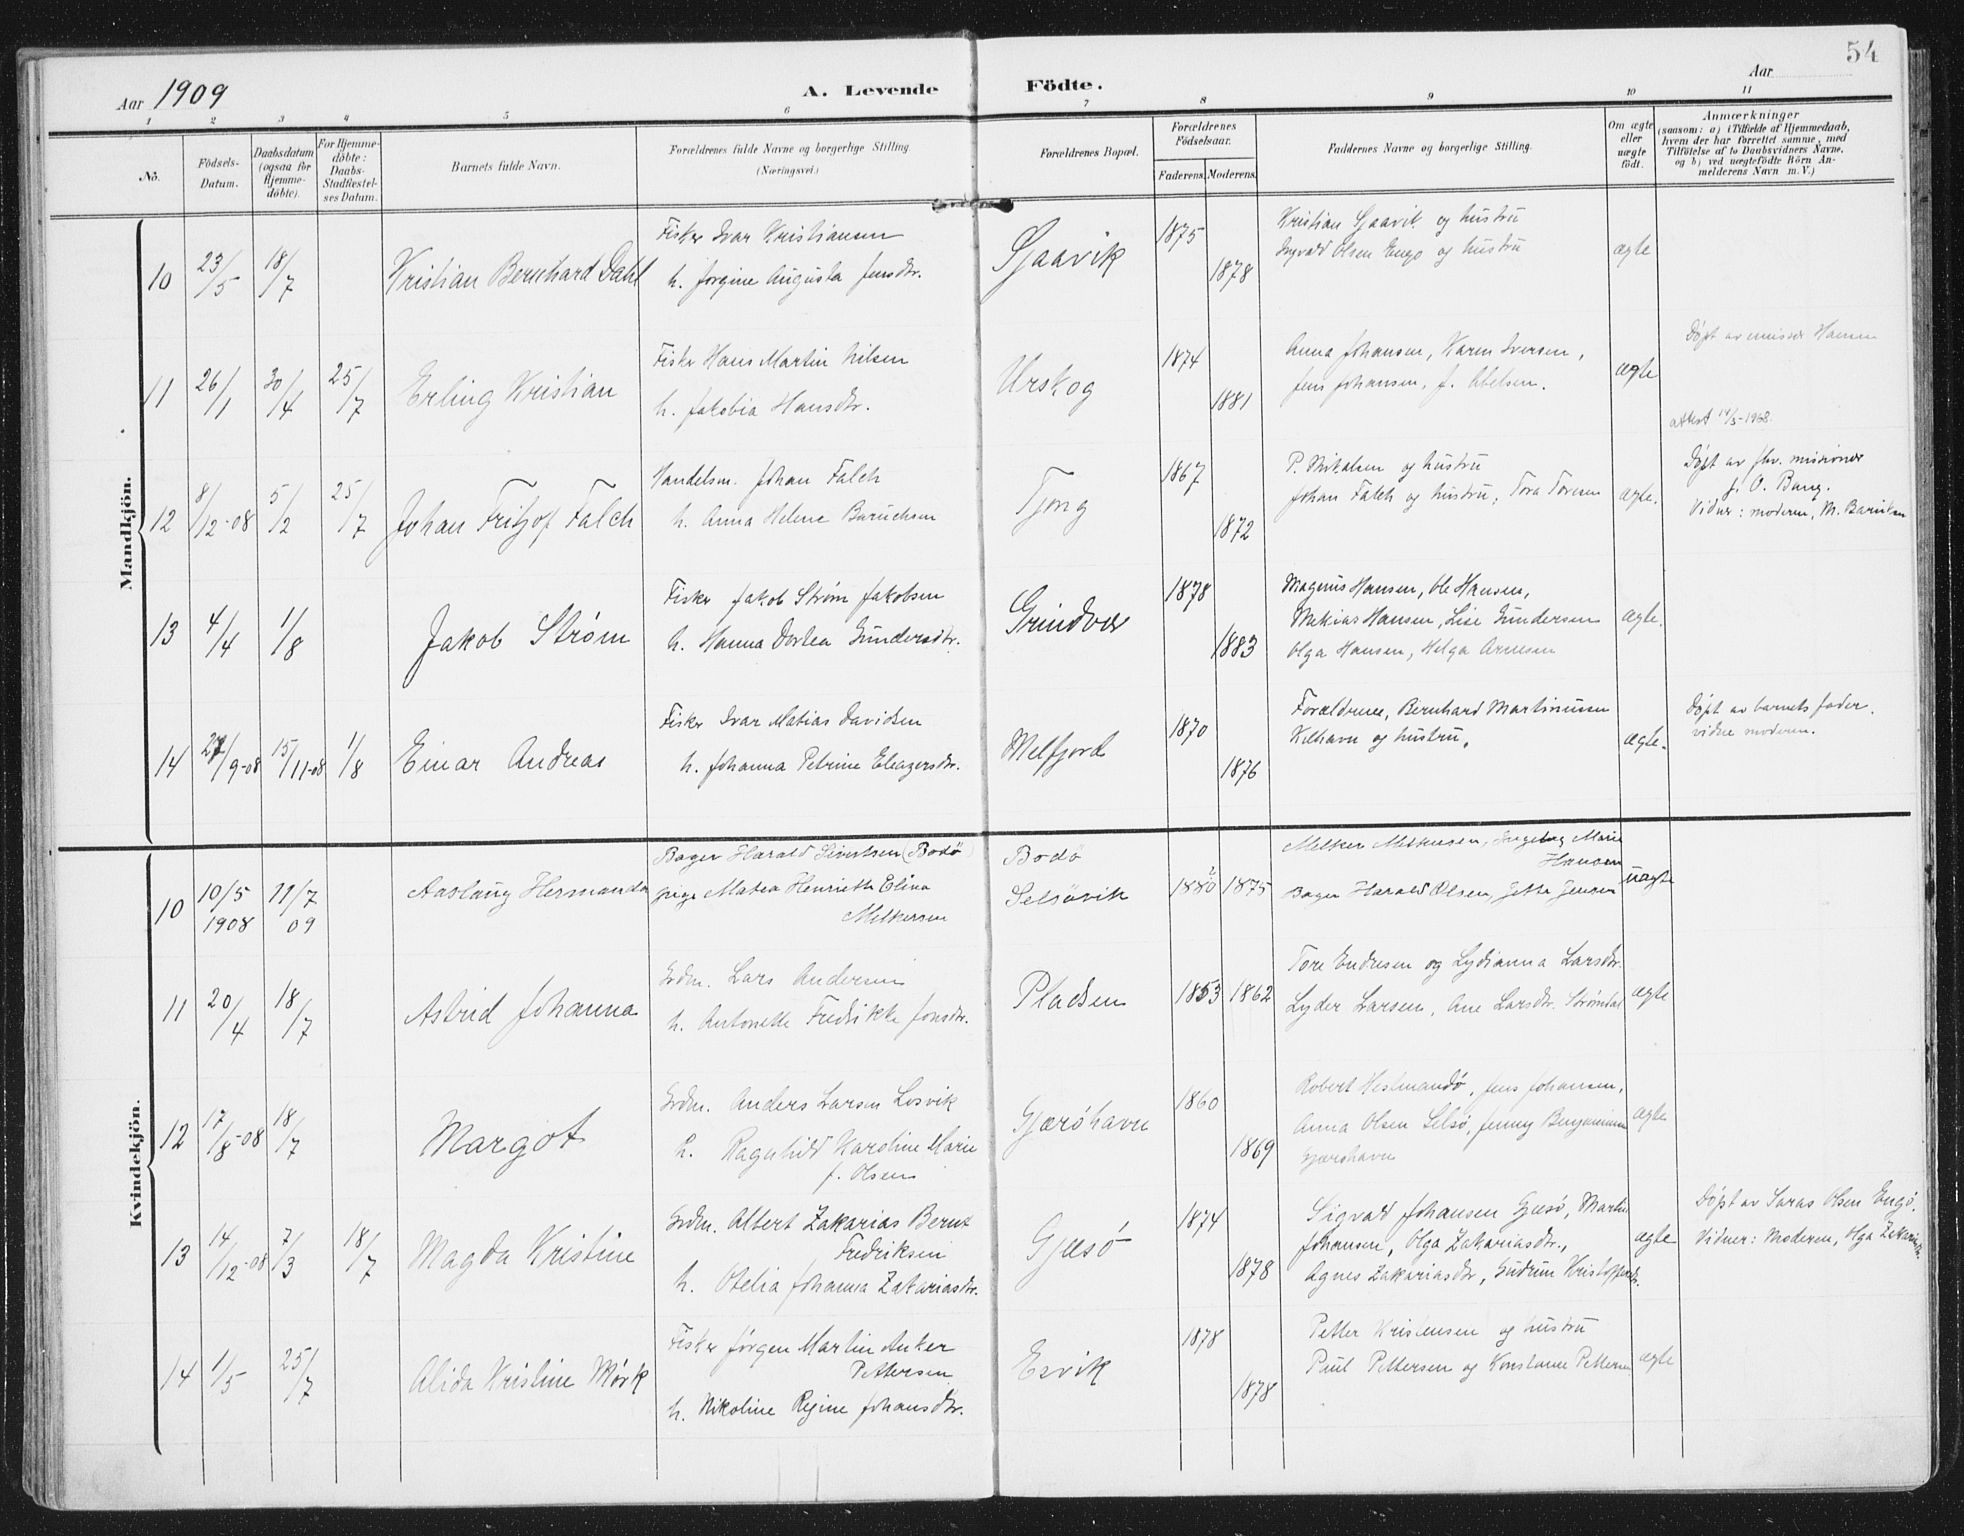 54
Aar 1909
A. Levende Födte.
Aar
1 2 3 4 5 6 7 8 9 10 11
No.
Födsels-Datum.
Daabsdatum (ogsaa for Hjemmedöbte).
For Hjemmedöbte: Daabs-Stadfæstelses Datum.
Barnets fulde Navn.
Forældrenes fulde Navne og borgerlige Stilling
(Næringsvei.)
Forældrenes Bopæl.
Forældrenes Födselsaar.
Faderens. Moderens.
Faddernes Navne og borgerlige Stilling.
Om ægte eller uægte födt.
Anmærkninger
(saasom: a) i Tilfælde af Hjemmedaab,
hvem der har forrettet samme, med
Tilföielse af to Daabsvidners Navne,
og b) ved uægtefödte Börn Anmelderens Navn m. V.)
Mandkjön.
10 23/5 18/7 Kristian Bernhard Dahl
Fisker Ivar Kristiansen
h. Jørgine Augusta Jensdtr.
Sjaavik 1875 1878
Kristian Sjaavik og hustru
Ingvald Olsen Engø og hustru
ægte
11 26/1 30/4 25/7 Erling Kristian
Fisker Hans Martin Nilsen
h. Jakobia Hansdtr.
Urskog 1874 1881
Anna Johansen, Karen Iversen,
Jens Johansen, J. Abelsen.
ægte
Døpt av emissær Hansen
attest 14/5-1968.
12 8/12-08 5/2 25/7 Johan Fritjof Falch
Handelsm. Johan Falch
h. Anna Helene Baruchsen
Tjong 1867 1872
P. Nikolsen og hustru
Johan Falch og hustru, Tora Toresen
ægte.
Døpt av fhv. missionær
J. O. Bang.
Vidner: moderen, M. Baruksen
13 4/4 1/8 Jakob Strøm
Fisker Jakob Strøm Jakobsen
h. Hanna Dortea Gundersdtr.
Grindvær 1878 1883
Magnus Hansen, Ole Hansen,
Mekias Hansen, Lise Gundersen
Olga Hansen, Helga Arnesen
ægte.
14 27/9-08 15/11-08 1/8 Einar Andreas
Fisker Ivar Matias Davidsen
h. Johanna Petrine Eleazersdtr.
Melfjord 1870 1876
Forældrene, Bernhard Martinussen
Kilhavn og hustru,
ægte.
Døpt av barnets fader.
vidne moderen.
Kvindekjön.
10 10/5 1908 11/7 09 Aaslaug Hermanda
Bager Harald Sivertsen (Bodø)
pige Matea Henriette Elina
Melkersen
Bodø
Selsøvik 1880 1875
Melker Melkersen, Ingeborg Marie
Hansen
Bager Harald Olsen, Jette Jensen
uægte
11 20/4 18/7 Astrid Johanna
Grdm. Lars Andersen
h. Antonette Fredrikke Jonsdtr.
Pladsen 1853 1862
Tore Endresen og Lydianna Larsdtr.
Lyder Larsen, Ane Larsdtr. Strømdal
ægte
12 17/8-08 18/7 Margot
Grdm. Anders Larsen Losvik
h. Ragnhild Karoline Marie
f. Olsen
Gjærøhavn 1860 1869
Robert Hestmandø, Jens Johansen,
Anna Olsen Selsø, Jenny Benjaminsen
Gjærøhavn
ægte
13 14/12-08 7/3 18/7 Magda Kristine
Grdm. Albert Zakarias Bernt
Fredriksen
h. Otelia Johanna Zakariasdtr.
Gjesø 1874 1878
Sigvald Johansen Gjesø, Martin
Johansen, Olga Zakariasdtr.,
Agnes Zakariasdtr, Gudrun Kristoffersdtr.
ægte
Døpt av Saras Olsen Engø.
Vidner: Moderen, Olga Zakariasdtr.
14 1/5 25/7 Alida Kristine Mørk
Fisker Jørgen Martin Anker
Pettersen
h. Nikoline Regine Johansdtr.
Esvik 1878 1878
Petter Kristensen og hustru
Paul Pettersen og Konstanse Pettersen
ægte